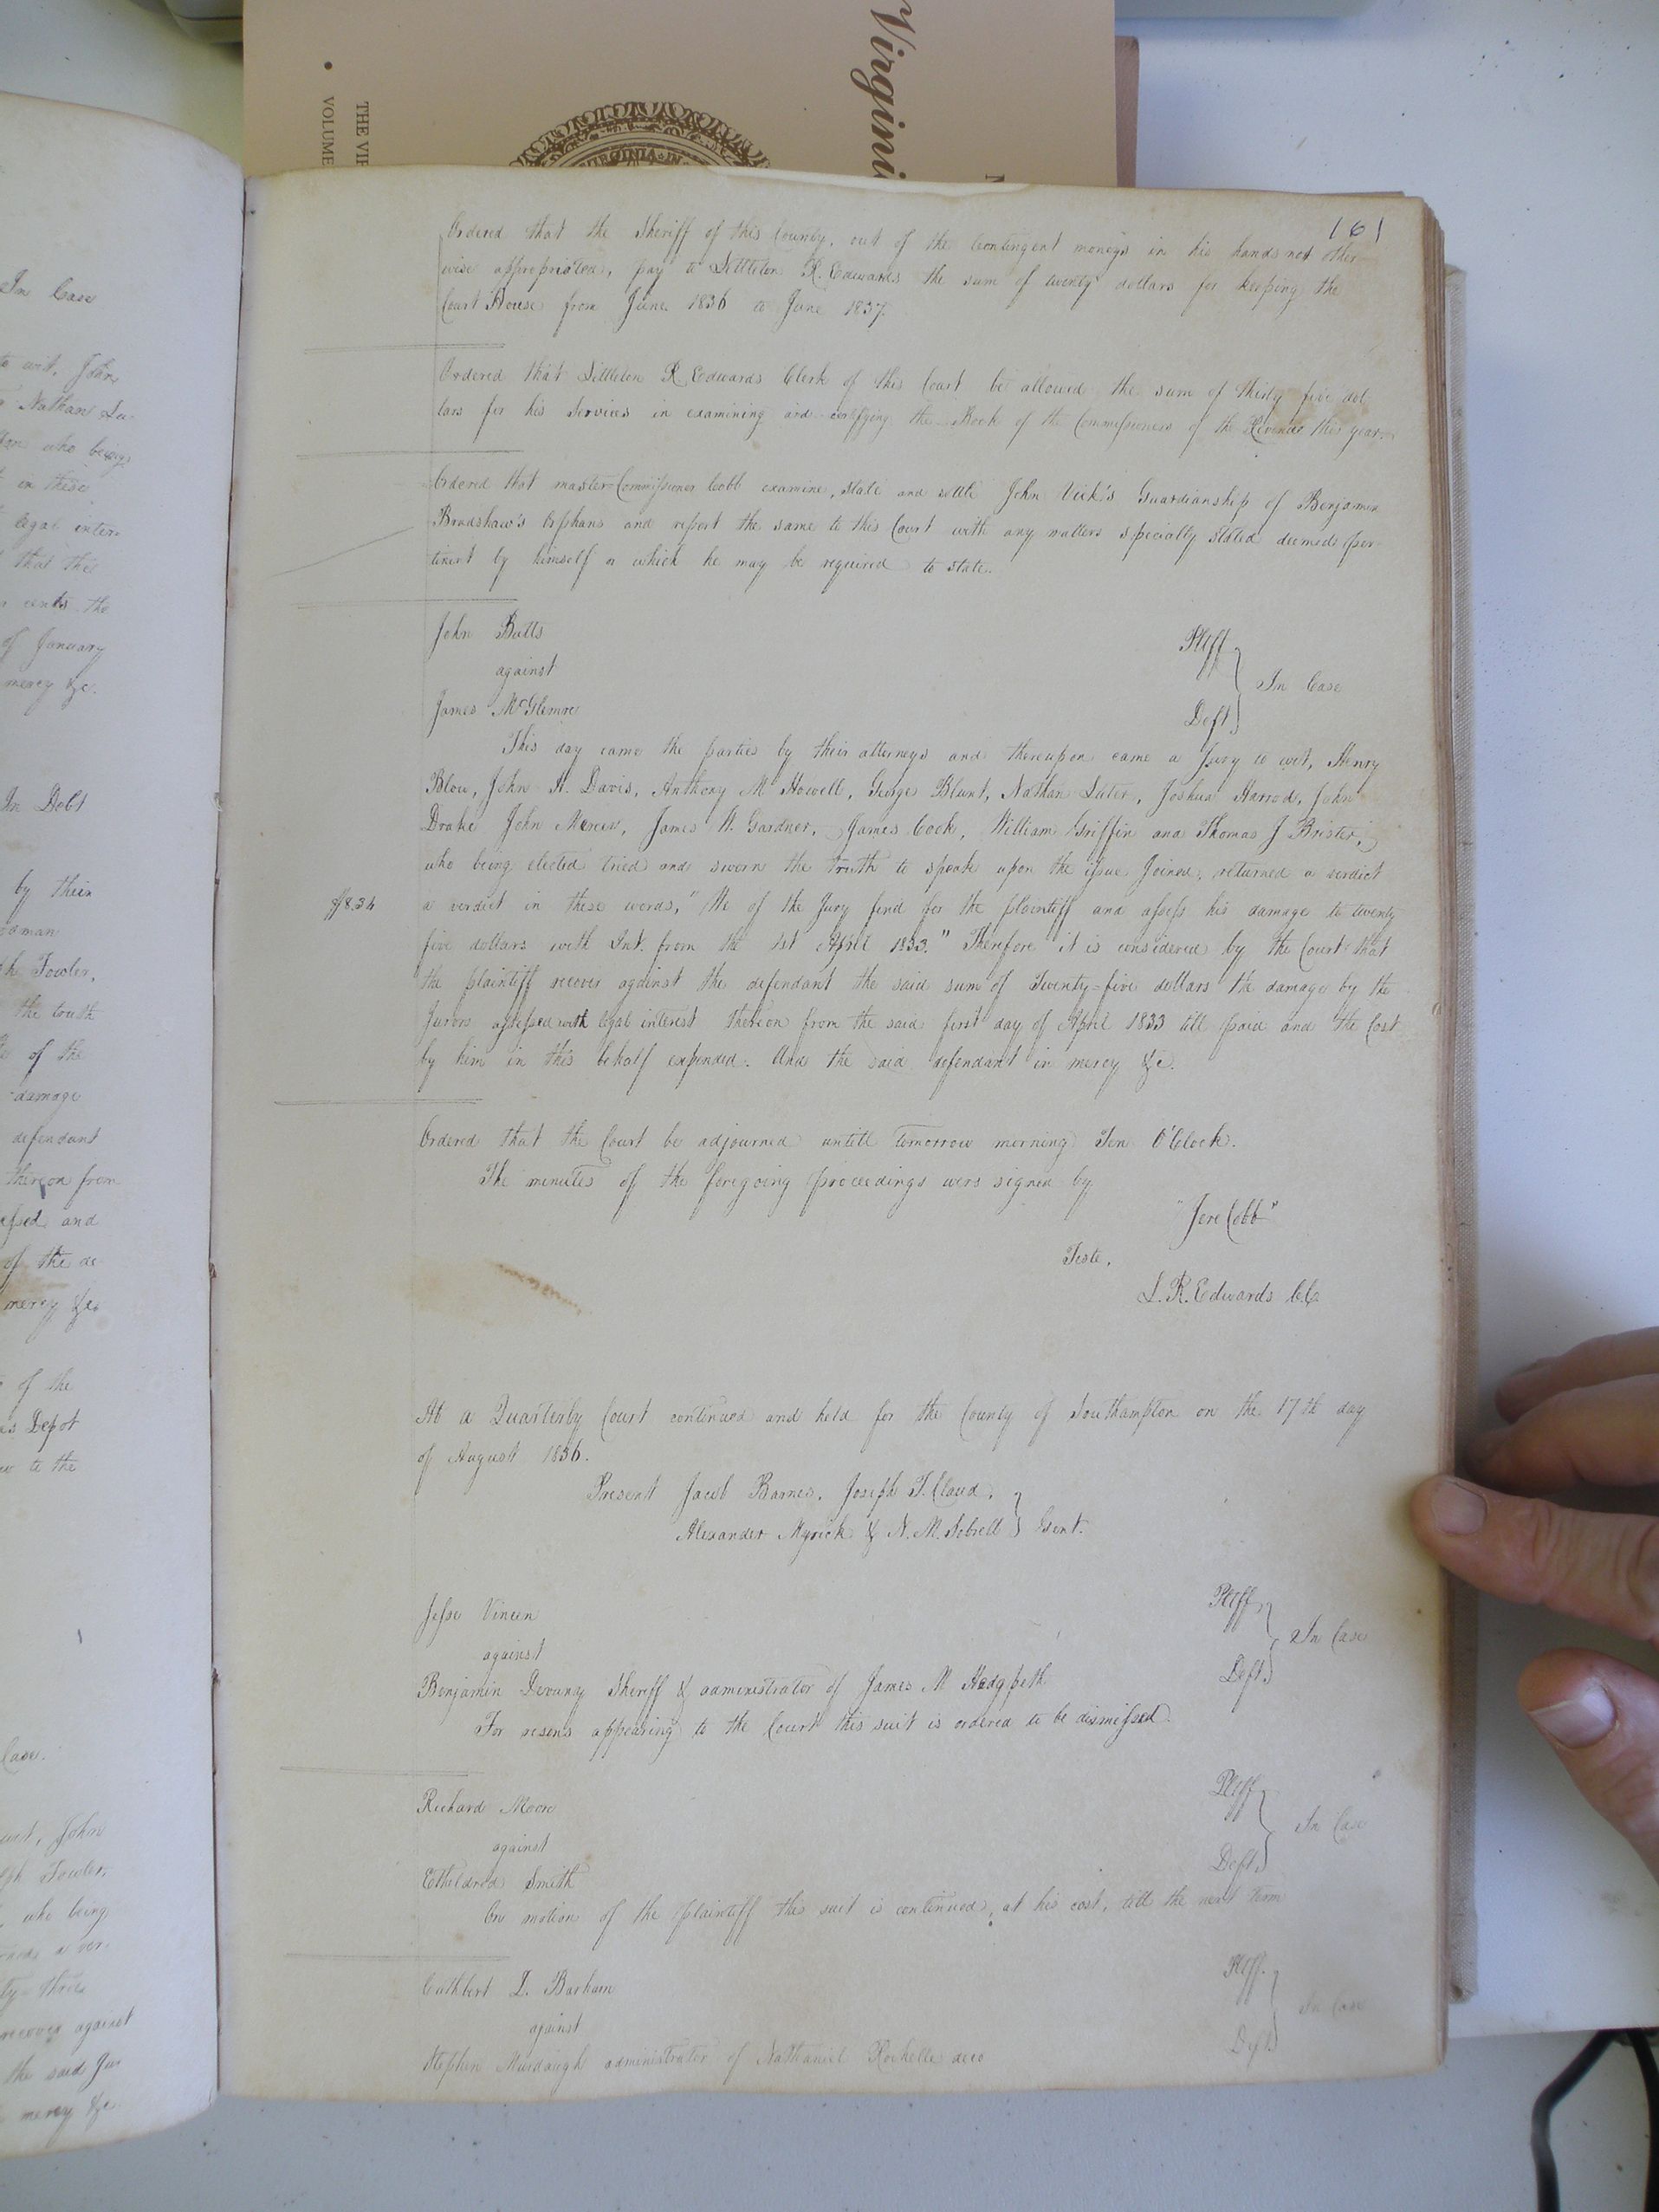 Virgini
THE VIR
VOLUME
VIRGINIA IN
161
Ordered that the Sheriff of this County, out of the Contingent moneys in his hands not other
wise appropriated, pay to Littleton R. Edwards the sum of twenty dollars for keeping the
Court House from June 1836 to June 1837.
Ordered that Littleton R. Edwards Clerk of this Court be allowed the sum of thirty five dol
lars for his Services in examining and certifying the Book of the Commissioners of the Revenue this year.
Ordered that master-Commissioner Cobb examine, state and settle John Vick's Guardianship of Benjamin
Bradshaw's Orphans and report the same to this Court with any matters specially stated deemed per
tinent by himself or which he may be required to state.
John Butts Pltff
against In Case
James McGlemre Deft
This day came the parties by their attorneys and thereupon came a Jury to wit, Henry
Blow, John H. Davis, Anthony M Howell, George Blunt, Nathan Luter, Joshua Harrod, John
Drake John Mercer, James W. Gardner, James Cock, William Griffin and Thomas J Brister,
who being elected tried and sworn the truth to speak upon the issue Joined, returned a verdict
$18.34
a verdict in these words, "We of the Jury find for the plaintiff and assess his damage to twenty
five dollars with Int. from the 1st April 1833." Therefore it is considered by the Court that
the plaintiff recover against the defendant the said sum of Twenty=five dollars the damage by the
Jurors assessed with legal interest thereon from the said first day of April 1833 till paid and the Cost
by him in this behalf expended. And the said defendant in mercy &c.
Ordered that the Court be adjourned untill tomorrow morning Ten O'Clock.
The minutes of the foregoing proceedings were signed by
"Jere Cobb"
Teste,
L. R. Edwards CC
At a Quarterly Court continued and held for the County of Southampton on the 17th day
of August 1836.
Present Jacob Barnes, Joseph T. Claud,
Alexander Myrick & N. M. Sebrell Gent.
Jesse Vincen Pltff
against In Case
Benjamin Devany Sheriff & administrator of James M Hedgpeth Deft
For resons appearing to the Court this suit is ordered to be dismissed.
Richard Moore Pltff
against In Case
Etheldred Smith Deft
On motion of the plaintiff this suit is continued, at his cost, till the next term
Cuthbert D. Barham Pltff.
against In Case
Stephen Murdaugh administrator of Nathaniel Rochelle deco Deft
In Case
to wit, John
Nathan Lu-
who being
in these
legal inter-
that the
cents the
of January
mercy &c.
In Debt
by their
Fowler,
the truth
of the
damage
defendant
thereon from
and
of the
mercy &c
of the
Depot
to the
Case.
John
Fowler,
who being
a ver-
ty-three
recover against
the said Ju
mercy &c